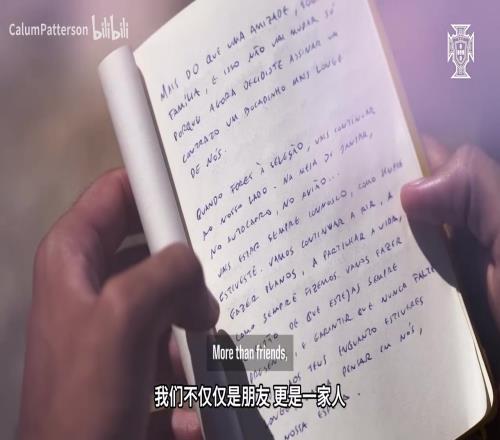 CalumPatterson bilibili
MAIS DO QUE UMA AMIZADE,
FAMÍLIA, E ISSO NÃO VAI MUDAR SÓ
PORQUE AGORA DECIDISTE ASSINAR UM
CONTRATO UM BOCADINHO MAIS LONGE
DE NÓS.
QUANDO FORES À SELEÇÃO, VAIS CONTINUAR
AO NOSSO LADO. NA MESA DE JANTAR,
NO AUTOCARRO, NO AVIÃO...
VAIS ESTAR SEMPRE CONNOSCO, COMO SEMPRE
ESTIVESTE. VAMOS CONTINUAR A RIR, A
FAZER PLANOS, A PARTILHAR A VIDA,
COMO SEMPRE FIZEMOS. VAMOS FAZER
DE QUE ESTEJAS SEMPRE
E GARANTIR QUE NUNCA FALTE
OS TEUS ENQUANTO ESTIVERES
PENSAR EM NÓS,
NOSSA
More than friends,
我们不仅仅是朋友 更是一家人